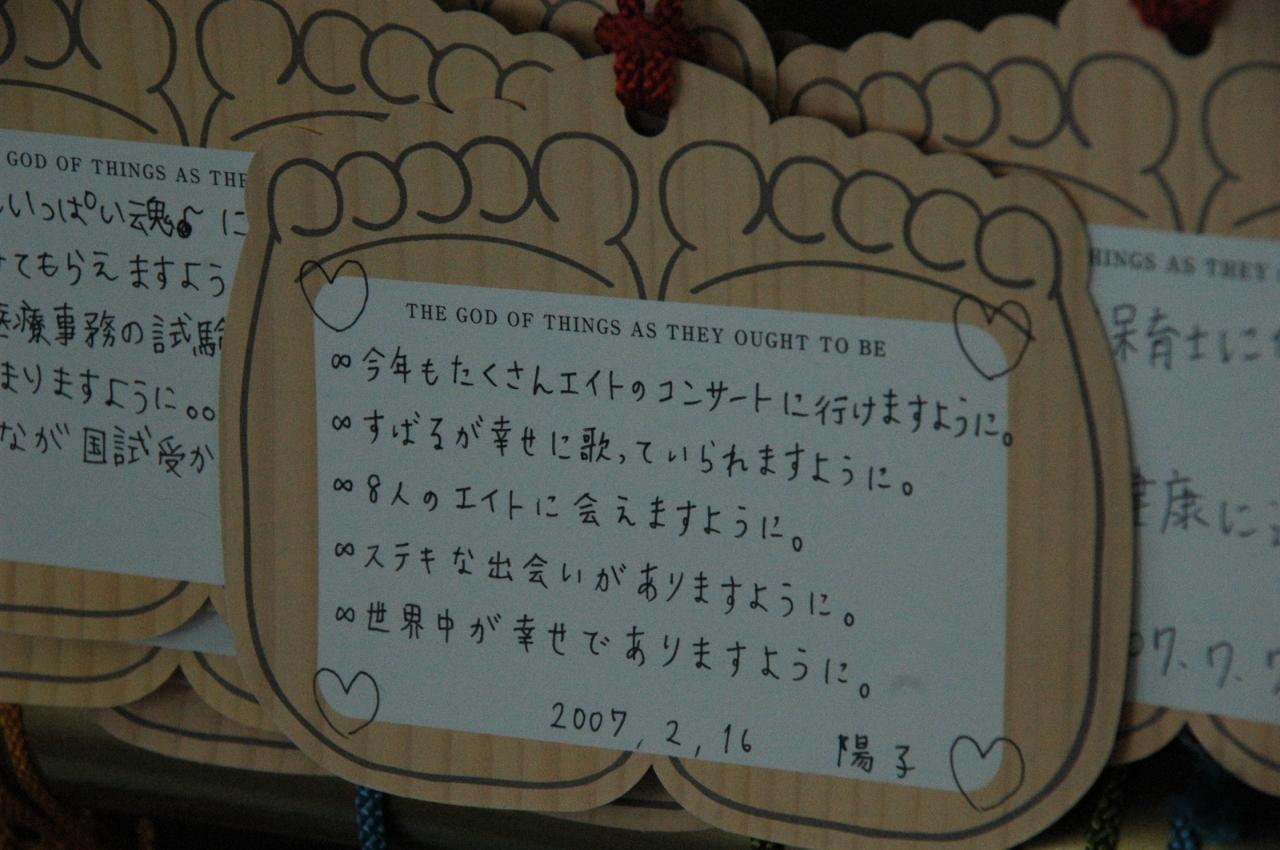 GOD OF THINGS AS THE
いっぱい魂 に
てもらえますよう
医療事務の試験
まりますように。。
なが国試受か
THE GOD OF THINGS AS THEY OUGHT TO BE
∞今年もたくさんエイトのコンサートに行けますように。
∞すばるが幸せに歌っていられますように。
∞8人のエイトに会えますように。
∞ステキな出会いがありますように。
∞世界中が幸せでありますように。
2007,2,16 陽子
THINGS AS THEY
保育士に
健康に
07.7.7